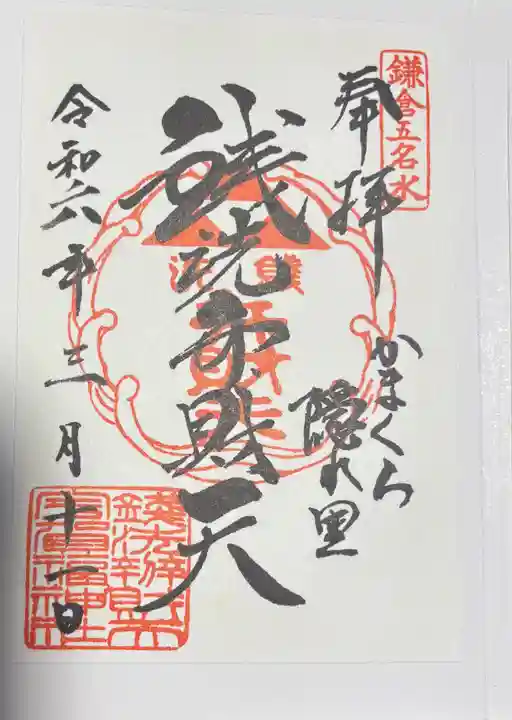 鎌倉五名水
奉拝
かまくら
隠れ里
銭洗弁財天
令和六年三月十一日